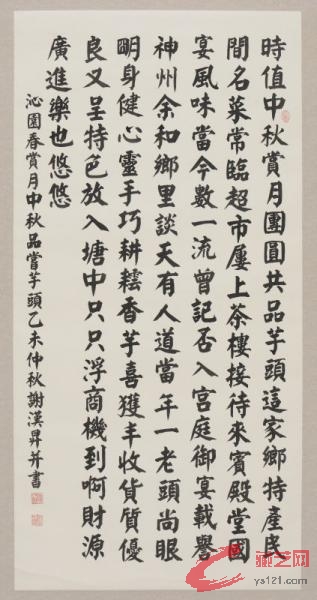 時值中秋賞月團圓共品芋頭這家鄉特產民
間名菜常臨超市屢上茶樓接待來賓殿堂國
宴風味當今數一流曾記否入宮庭御宴載譽
神州余和鄉里談天有人道當年一老頭尚眼
明身健心靈手巧耕耘香芋喜獲丰收貨質優
良又呈特色放入塘中只只浮商機到啊財源
廣進樂也悠悠
沁園春賞月中秋品嘗芋頭乙未仲秋謝漢昇并書
藏艺网
ys121.com